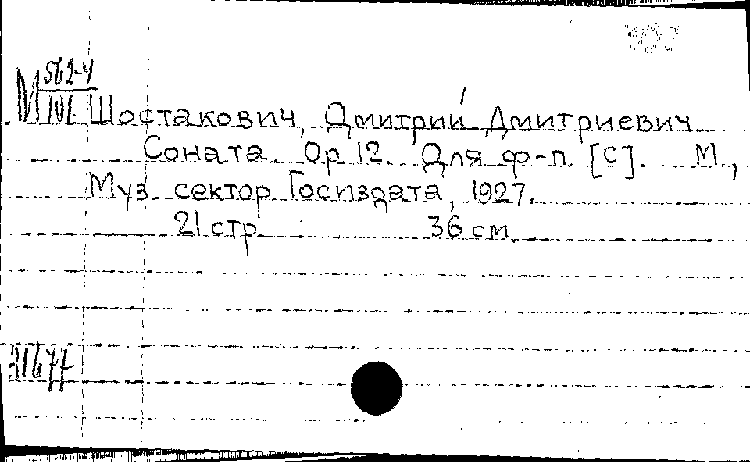 М 562-4
Шостакович, Дмитрий Дмитриевич
Соната. Op 12. Для ф-п. [С]. М.,
Муз. сектор Госиздата, 1927.
21 стр. 36 см.